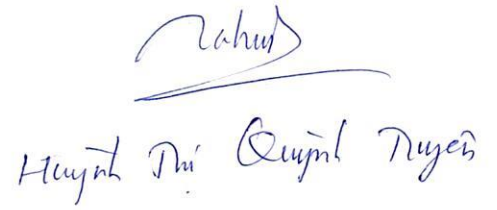 Huỳnh Thị Quỳnh Truyên